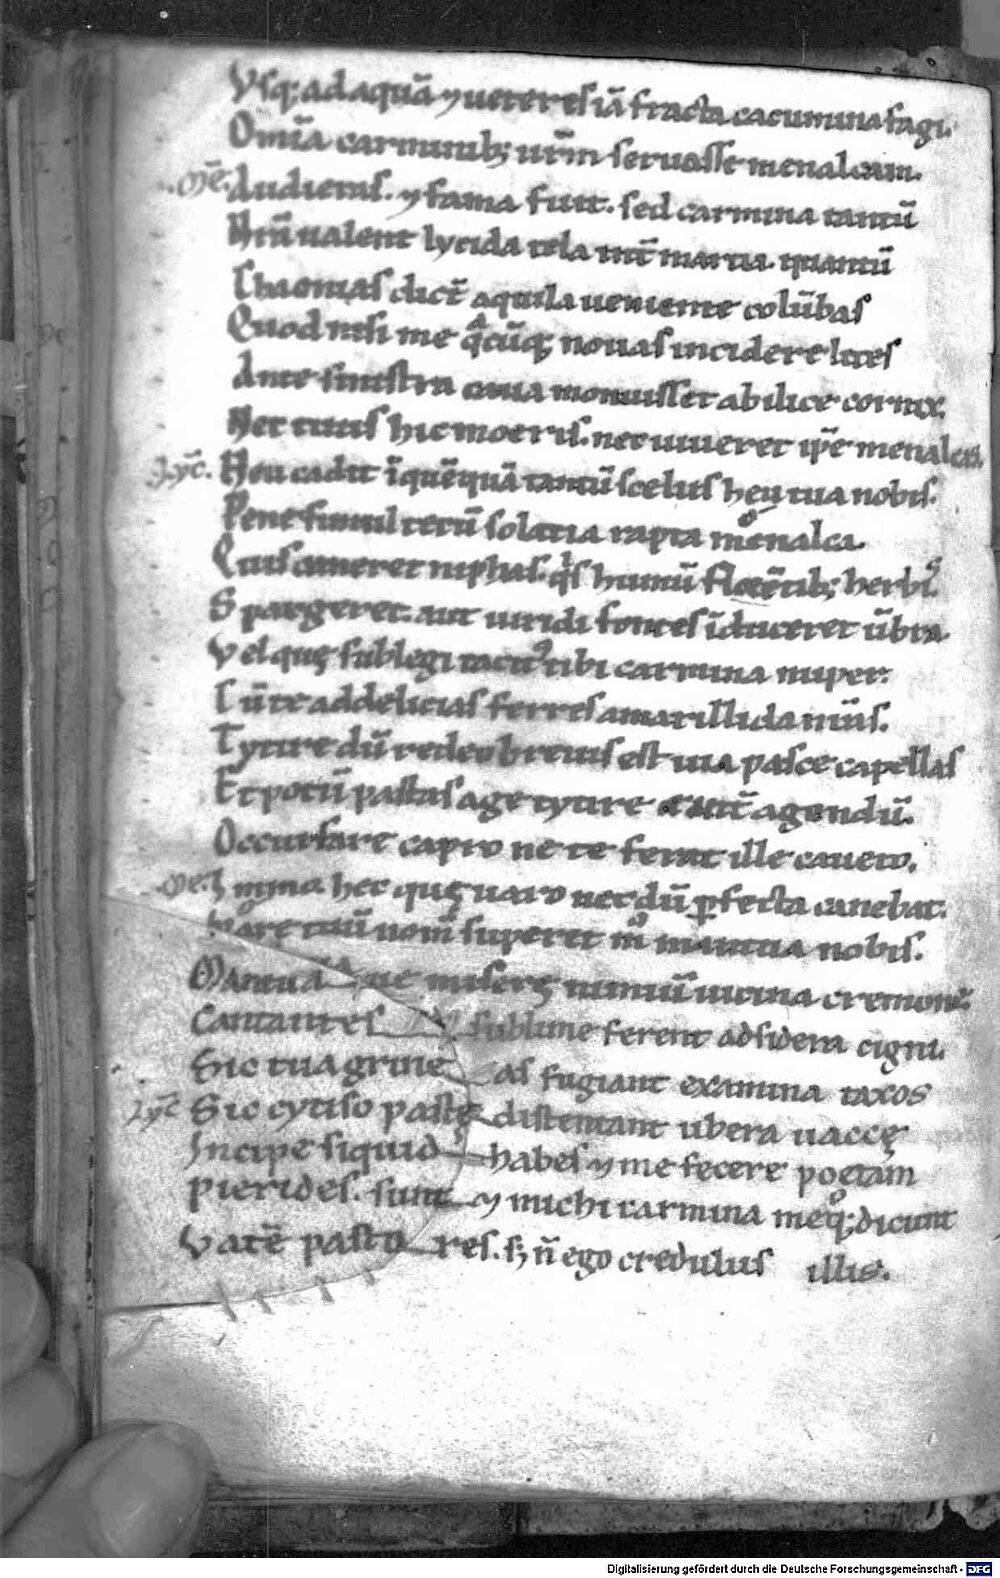 Vsq; ad aquā ⁊ ueteres iā fracta cacumina fagi.
Omīa carminib; urm̄ seruasse menalcam.
Mē. Audieras. ⁊ fama fuit. sed carmina tantū
Nrā ualent lycida tela int̄ martia quantū
Chaonias dict̄ aquila ueniente colūbas
Quod nisi me q̄cūq; nouas incidere lites
Ante sinistra caua monuisset ab ilice cornix.
Nec tuus hic moeris. nec uiueret ip̄e menalcas.
Lyc. Heu cadit ī quēquā tantū scelus heu tua nobis.
Pene simul tecū solatia rapta menalca.
Quis caneret niphas. q's humū florētib; herbis
Spargeret. aut uiridi fontes īduceret ūbra.
Vel quę sublegi tacit' tibi carmina nuper.
Cū te ad delicias ferres amarillida nr̄as.
Tytire dū redeo breuis est uia pasce capellas
Et potū pastas age tytire & int̄ agendū.
Occursare capro ne te ferat ille caueto.
Me. Immo hec quę uaro nec dū ꝑfecta canebat.
Vare tuū nom̄ superet m̊ mantua nobis.
Mantua ue miserę nimiū uicina cremonę
Cantantes sublime ferent ad sidera cigni.
Sic tua grine as fugiant examina taxos
Lyc Sic cytiso paste distentant ubera uaccę
Incipe siquid habes ⁊ me fecere poetam
Pierides. sunt ⁊ michi carmina meq; dicunt
Vatē pasto res. s; n̄ ego credulus illis.
Digitalisierung gefördert durch die Deutsche Forschungsgemeinschaft - DFG